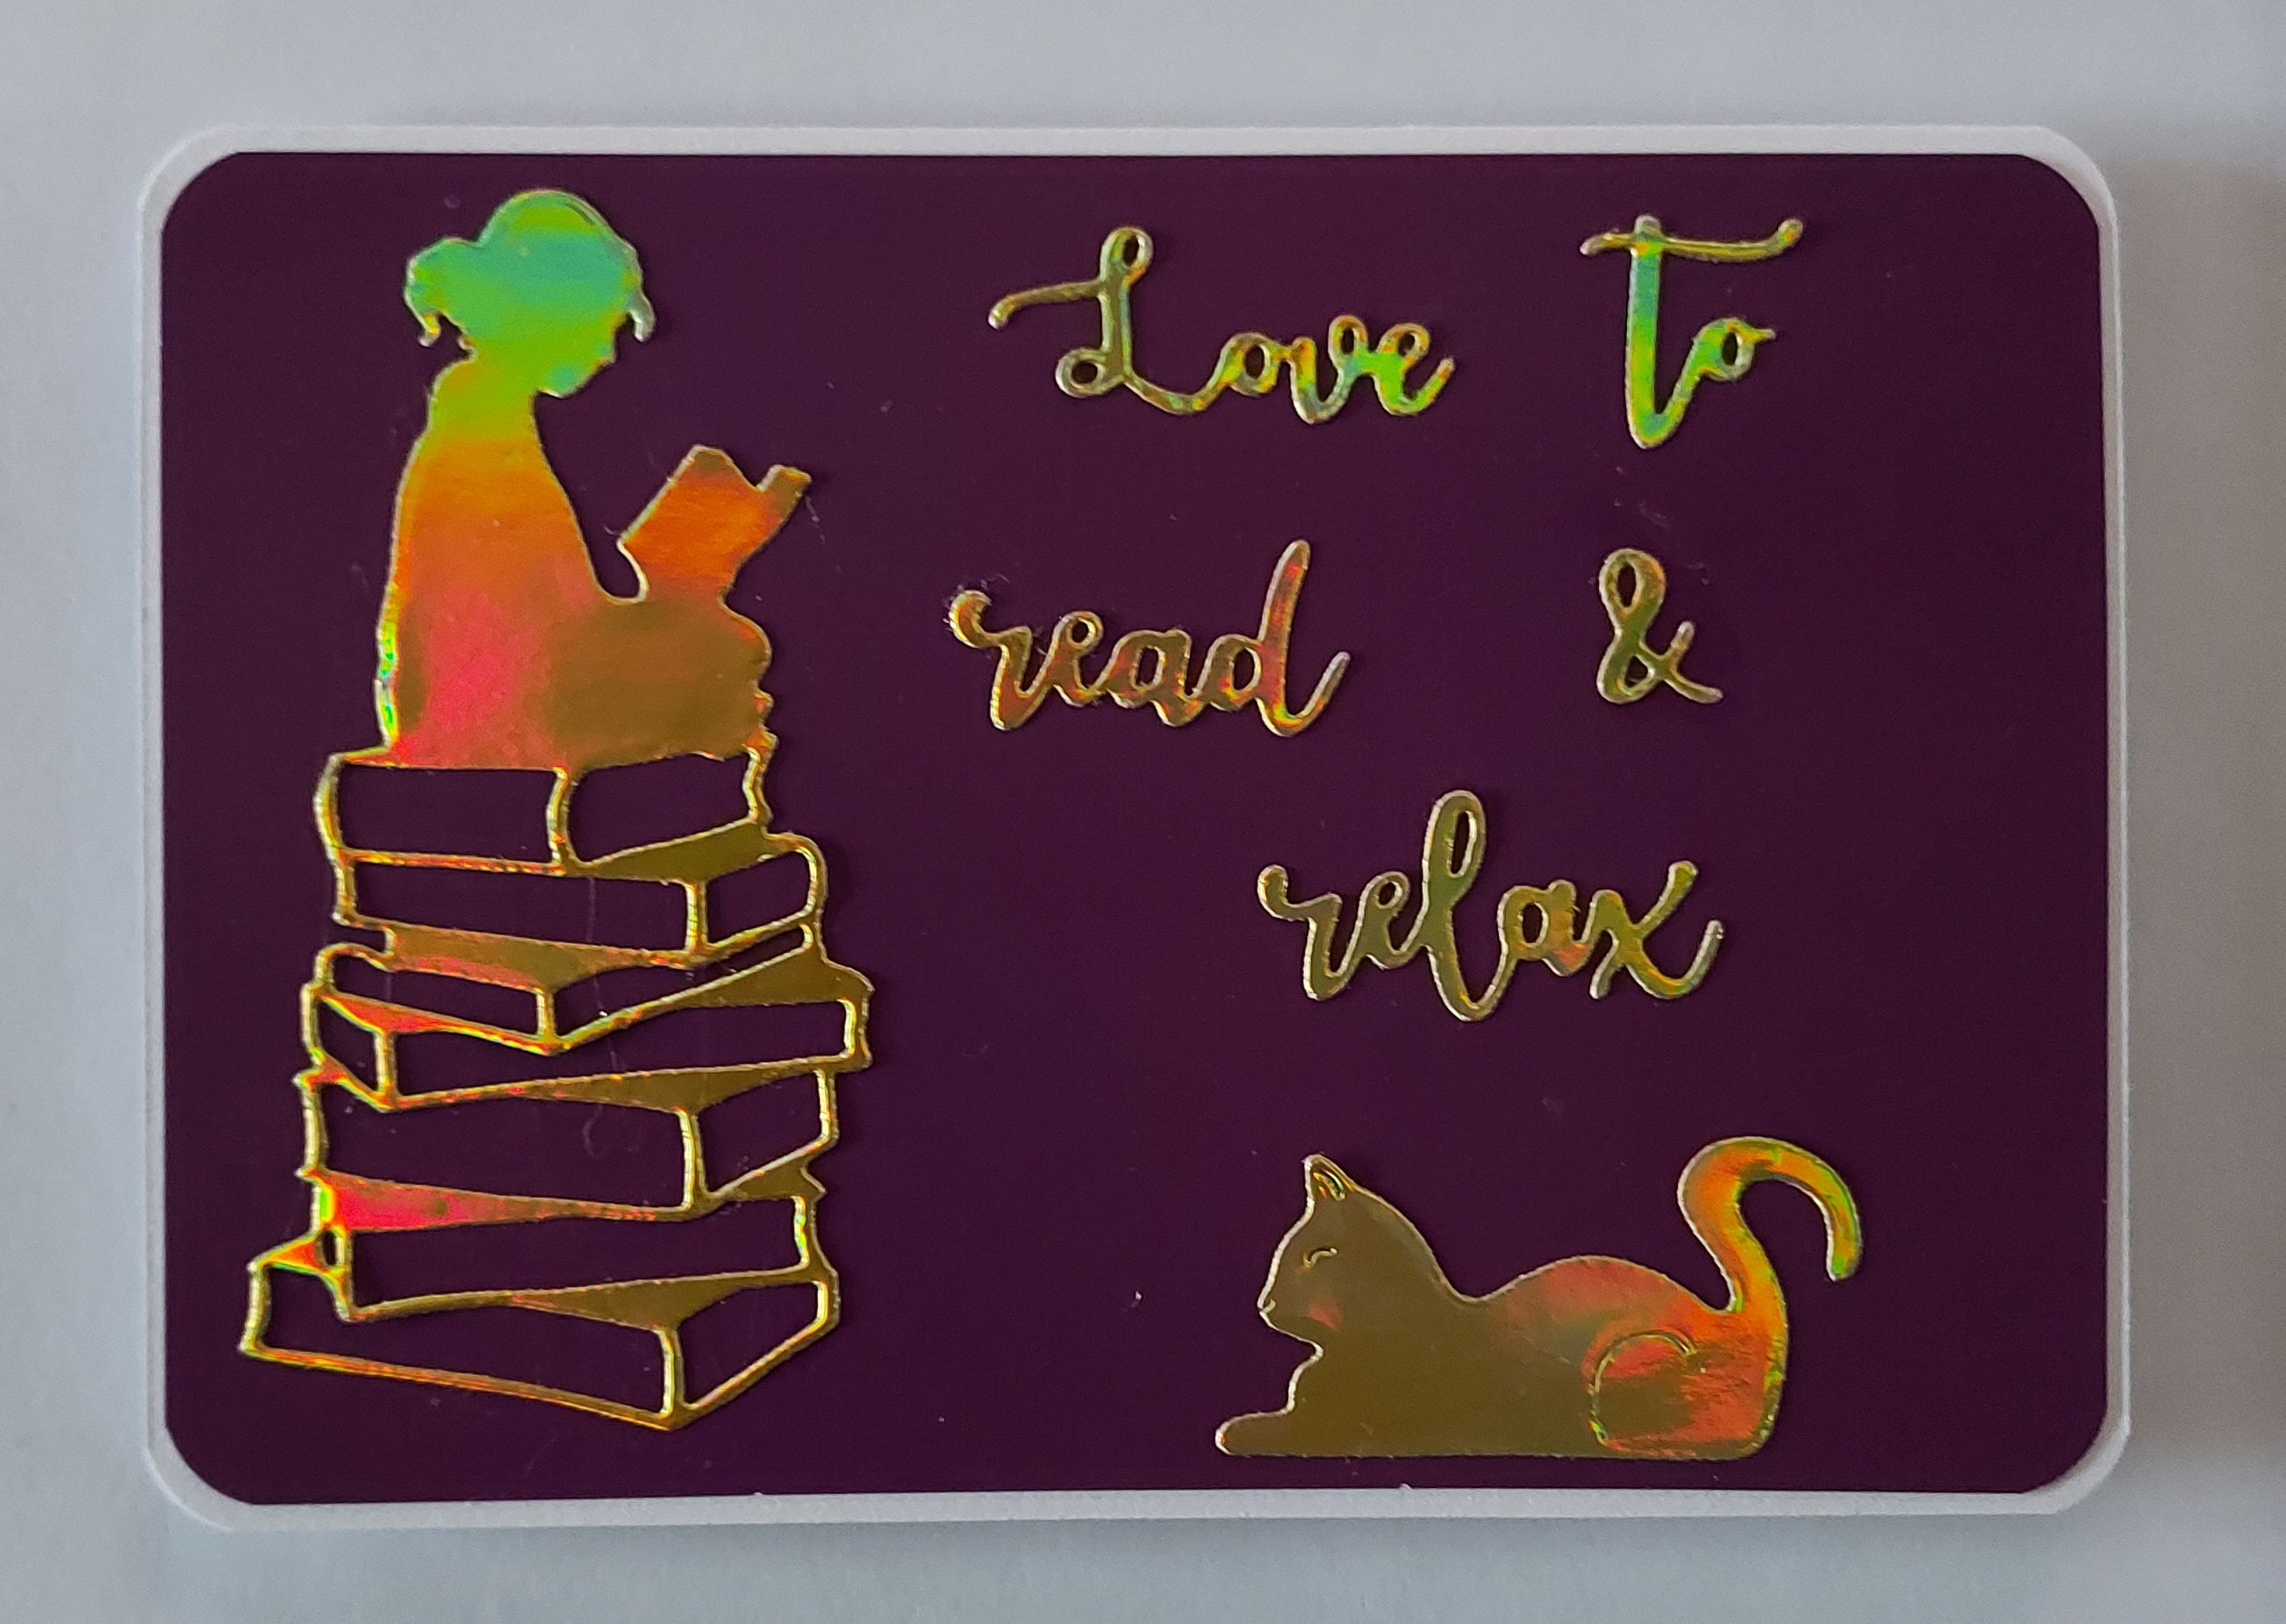 Love To
read &
relax